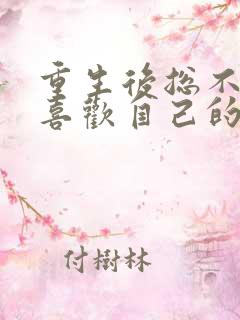 重生後總不
喜歡自己的
付樹林